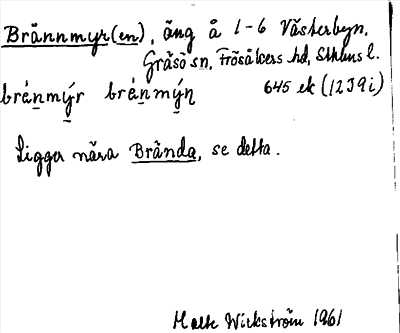 Brännmyr(en), äng å 1-6 Västerbyn,
Gräsö sn, Frösåkers hd, Sthlms l.
brén̲mýr brén̲mýn 645 ek (12J9i)
Ligger nära Brända, se detta.
Malte Wickström 1961